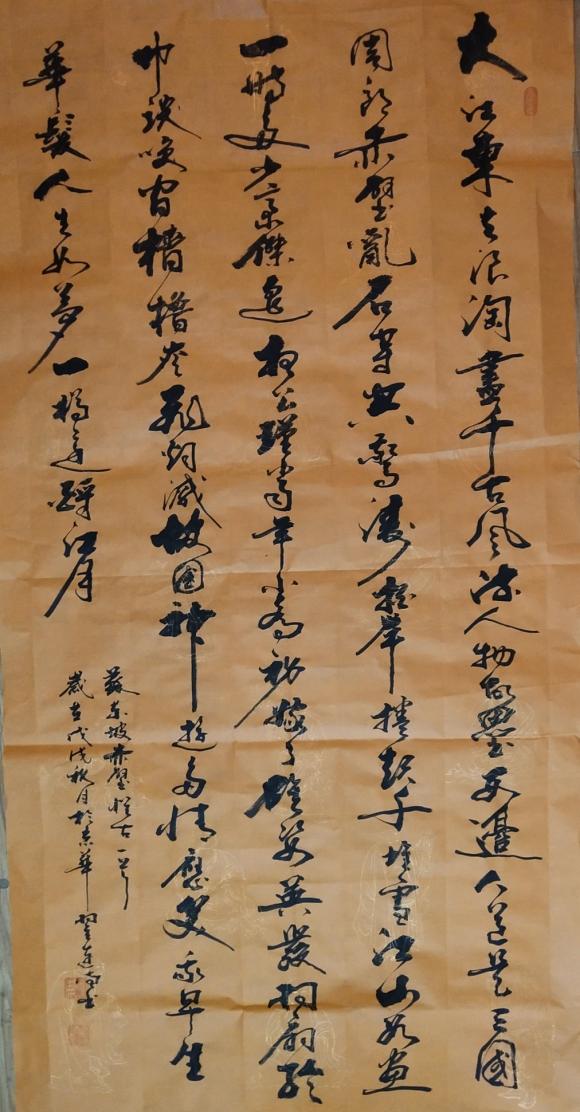 大江東去浪淘盡千古風流人物故壘西邊人道是三國
周郎赤壁亂石穿空驚濤拍岸捲起千堆雪江山如畫
一時多少豪傑遥想公瑾當年小喬初嫁了雄姿英發羽扇綸
巾談笑間檣櫓灰飛烟滅故國神遊多情應笑我早生
華髮人生如夢一樽還酹江月
蘇東坡赤壁懷古一首
歲在戊戌秋月於京華 連 書